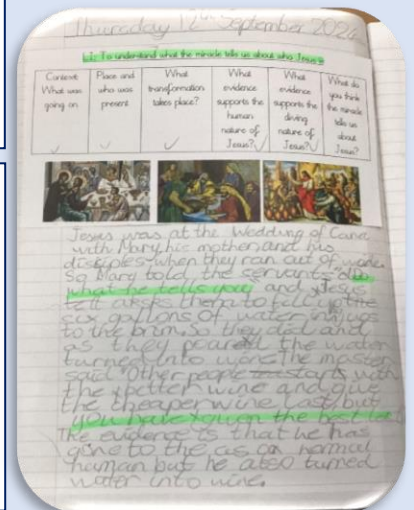 Thursday 12th September 2024
L.I: To understand what the miracle tells us about who Jesus is
Context What was going on
Place and who was present
What transformation takes place?
What evidence supports the human nature of Jesus?
What evidence supports the diving nature of Jesus?
What do you think the miracle tells us about Jesus?
Jesus was at the Wedding of Cana
with Mary, his mother and his
disciples when they ran out of wine.
So Mary told the servants "do
what he tells you" and Jesus
tell asks them to fill up the
six gallons of water in jugs
to the brim. So they did and
as they poared the water
turned into wine. The master
said "Other people starts with
the better wine and give
the cheaper wine last but
you have given the best last
The evidence is that he has
gone to the as a normal
human but he also turned
water into wine.